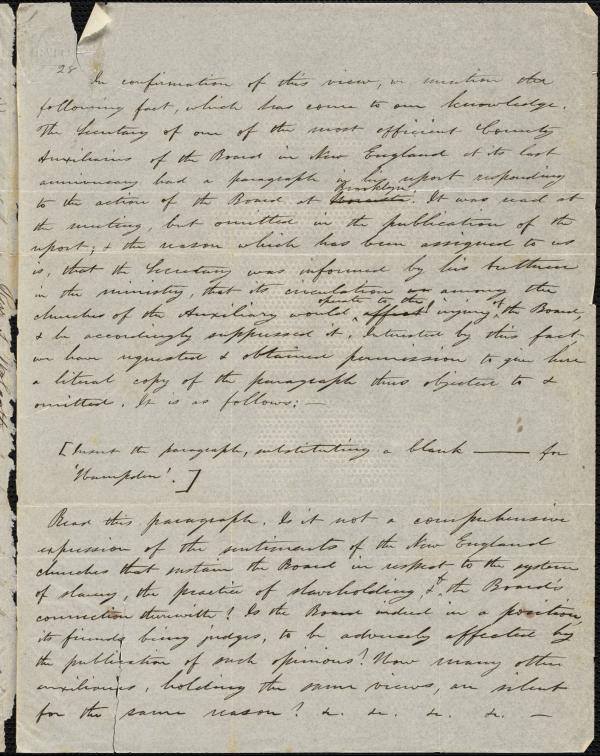 28
In confirmation of this view, we mention the
following fact, which has come to our knowledge.
The Secretary of one of the most efficient County
Auxiliaries of the Board in New England at its last
anniversary had a paragraph in his report responding
Brooklyn
to the action of the Board at. It was read at
the meeting, but omitted in the publication of the
report; & the reason which has been assigned to us
is, that the Secretary was informed by his brethren
in the ministry, that its circulation among the
operate to the of
churches of the Auxiliary would affect injury the Board,
& he accordingly suppressed it. Interested by this fact
we have requested & obtained permission to give here
a literal copy of the paragraph thus objected to &
omitted. It is as follows: —
[Insert the paragraph, substituting a blank —— for
'Hampden'.]
Read this paragraph. Is it not a comprehensive
expression of the sentiments of the New England
churches that sustain the Board in respect to the system
of slavery, the practice of slaveholding, & the Board's
connection therewith? Is the Board indeed in a position,
its friends being judges, to be adversely affected by
the publication of such opinions? How many other
auxiliaries, holding the same views, are silent
for the same reason? &. &c. &. &. —